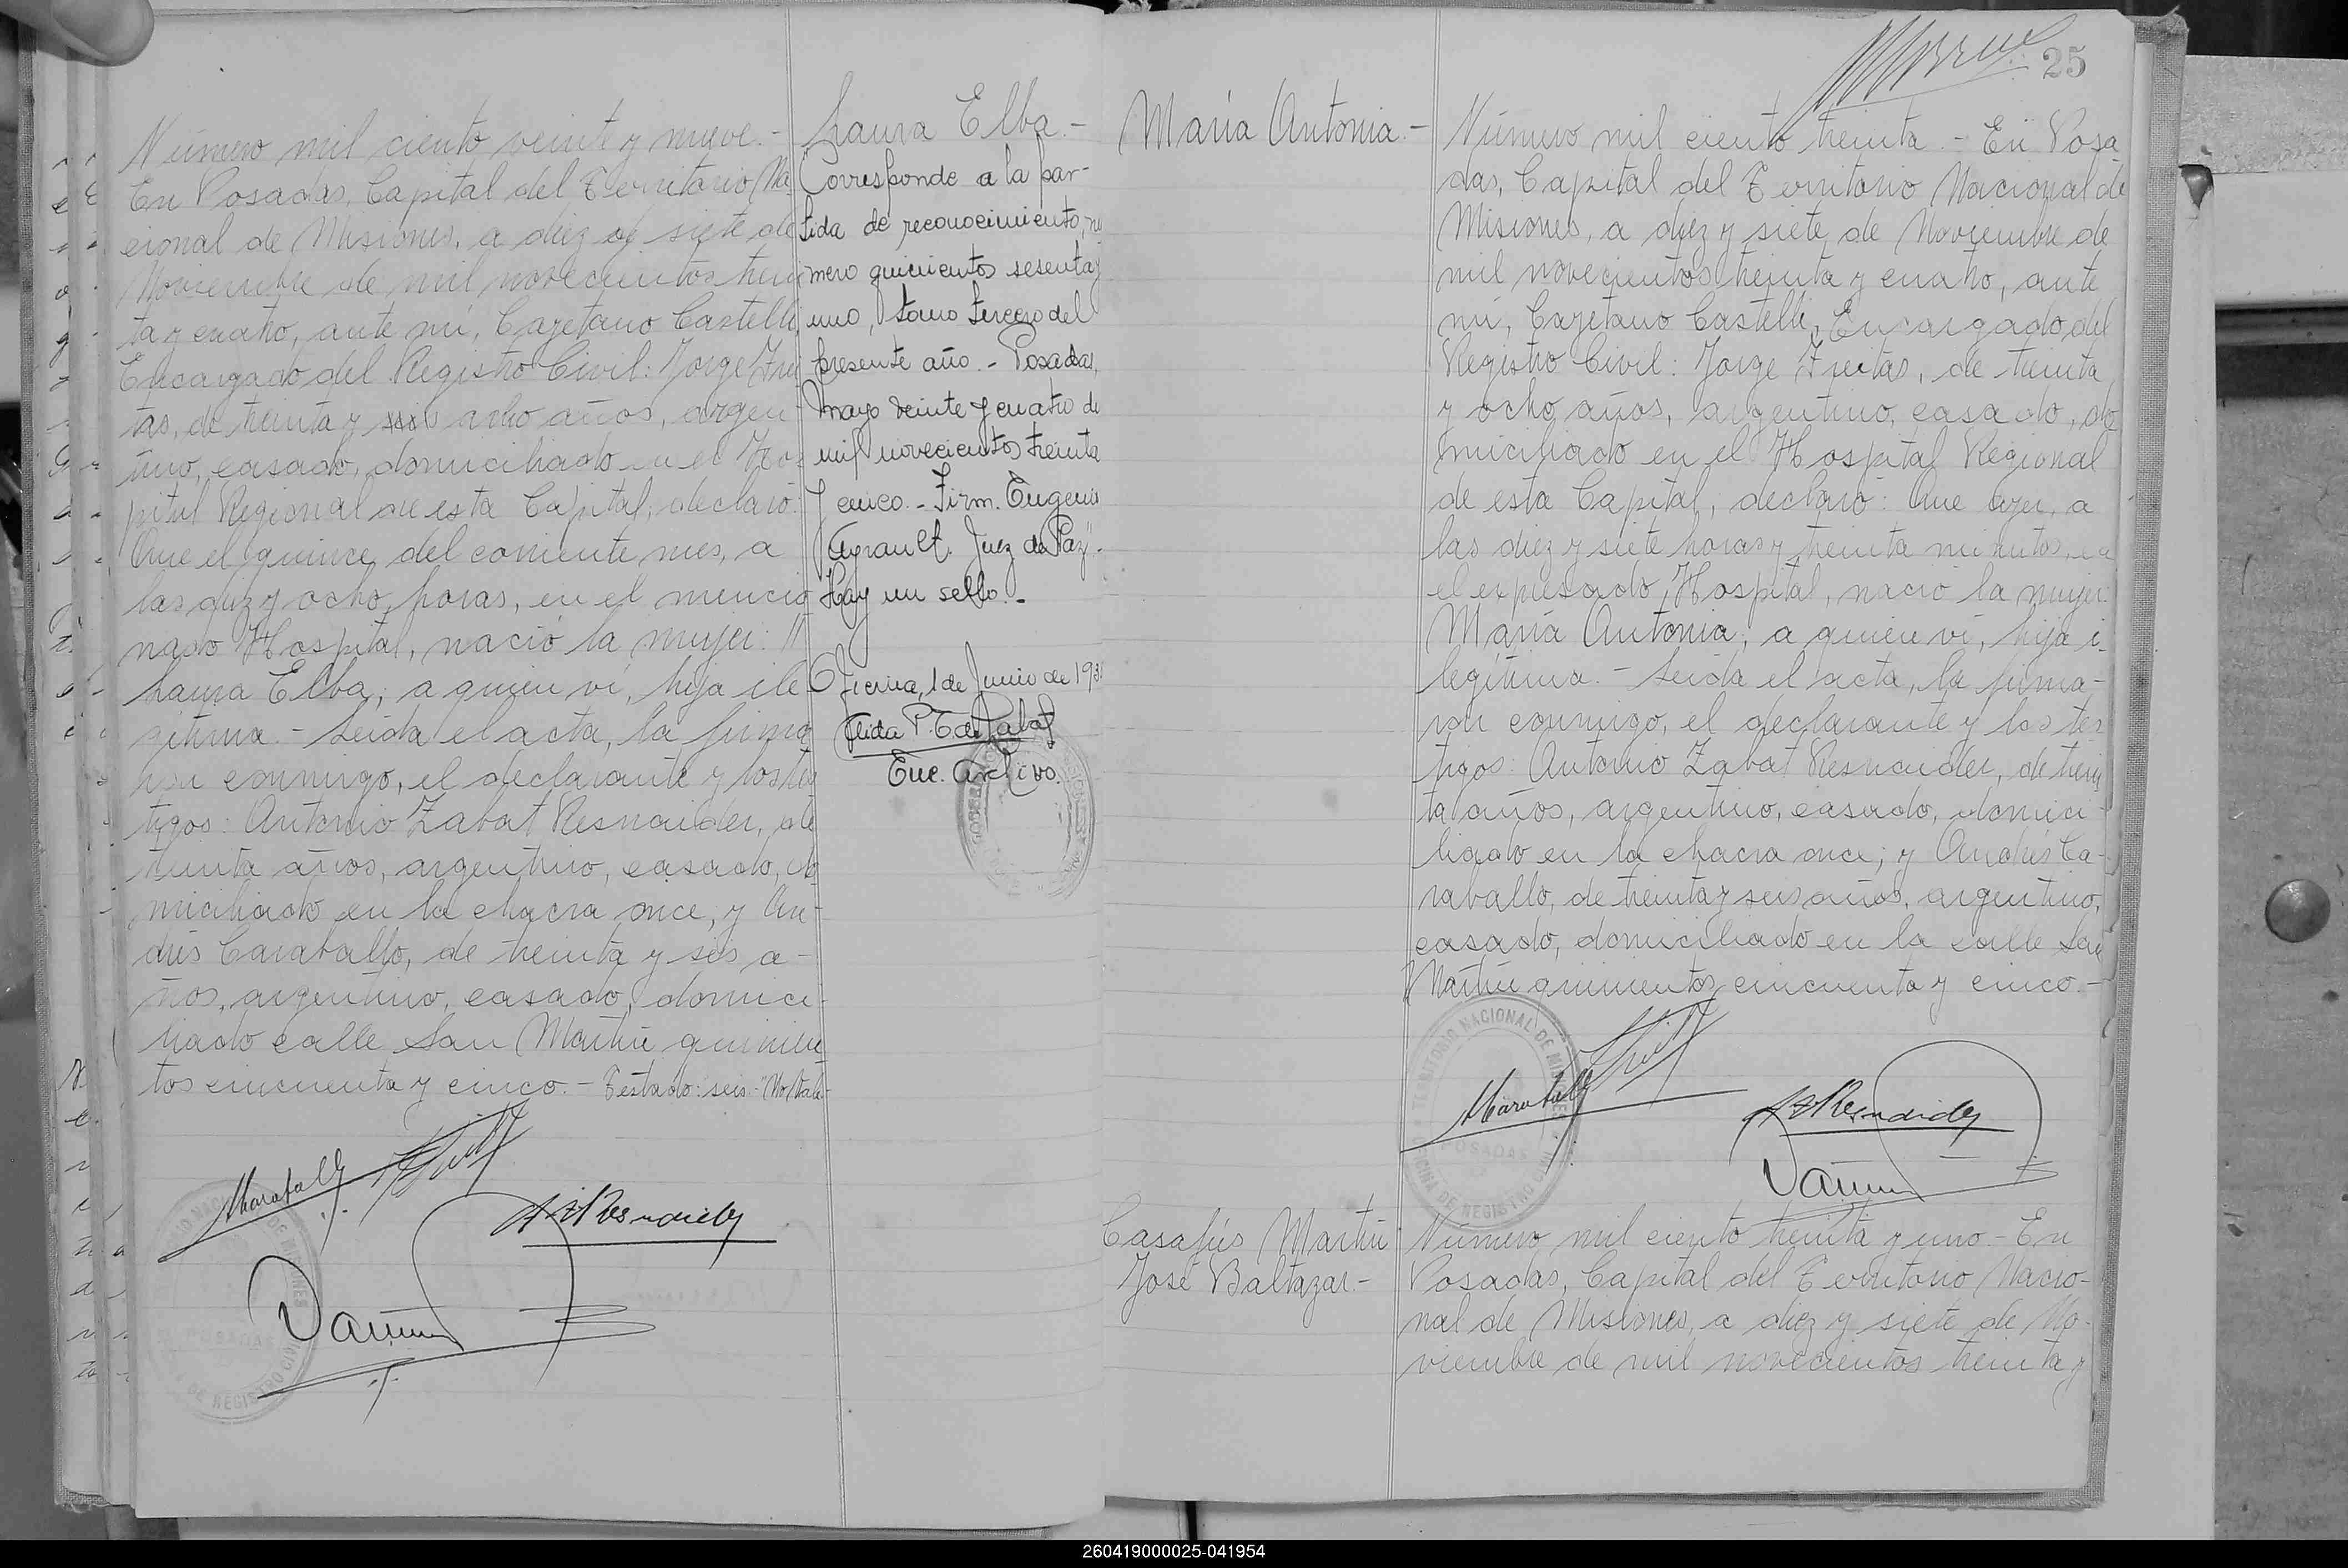 Número mil ciento veinte y nueve.-
En Posadas, Capital del Territorio Na-
cional de Misiones, a diez y siete de
Noviembre de mil novecientos trein
ta y cuatro, ante mí, Cayetano Castelli,
Encargado del Registro Civil: Jorge Frei
tas, de treinta y seis ocho años, argen-
tino, casado, domiciliado en el Hos-
pital Regional de esta Capital, declaró:
Que el quince del corriente mes, a
las diez y ocho horas, en el mencio
nado Hospital, nació la mujer:
Laura Elba, a quien ví, hija ile-
gítima.- Leída el acta, la firma
ron conmigo, el declarante y los tes
tigos: Antonio Zabat Resnaider, de
treinta años, argentino, casado, do
miciliado en la chacra once; y An-
drés Caraballo, de treinta y seis a-
ños, argentino, casado, domici-
liado calle San Martín quinien
tos cincuenta y cinco.- Testado: seis-"No Vale-
Laura Elba.-
"Corresponde a la par-
tida de reconocimiento, nú
mero quinientos sesenta y
uno, tomo tercero del
presente año.- Posadas,
mayo veinte y cuatro de
mil novecientos treinta
y cinco.- Firm. Eugenio
Ayrault. Juez de Paz".-
Hay un sello.-
Oficina, 1 de Junio de 193
Enc. Archivo.
25
María Antonia.-
Número mil ciento treinta.- En Posa
das, Capital del Territorio Nacional de
Misiones, a diez y siete de Noviembre de
mil novecientos treinta y cuatro, ante
mí, Cayetano Castelli, Encargado del
Registro Civil: Jorge Freitas, de treinta
y ocho años, argentino, casado, do
miciliado en el Hospital Regional
de esta Capital, declaró: Que ayer, a
las diez y siete horas y treinta minutos, en
el expresado Hospital, nació la mujer:
María Antonia, a quien ví, hija i-
legítima.- Leída el acta, la firma-
ron conmigo, el declarante y los tes
tigos: Antonio Zabat Resnaider, de trein
ta años, argentino, casado, domici-
liado en la chacra once; y Andrés Ca-
raballo, de treinta y seis años, argentino,
casado, domiciliado en la calle San
Martín quinientos cincuenta y cinco.-
TERRITORIO NACIONAL DE MISIONES
POSADAS
OFICINA DE REGISTRO CIVIL
Casafús Martín
José Baltazar.-
Número mil ciento treinta y uno.- En
Posadas, Capital del Territorio Nacio-
nal de Misiones, a diez y siete de No-
viembre de mil novecientos treinta y
260419000025-041954